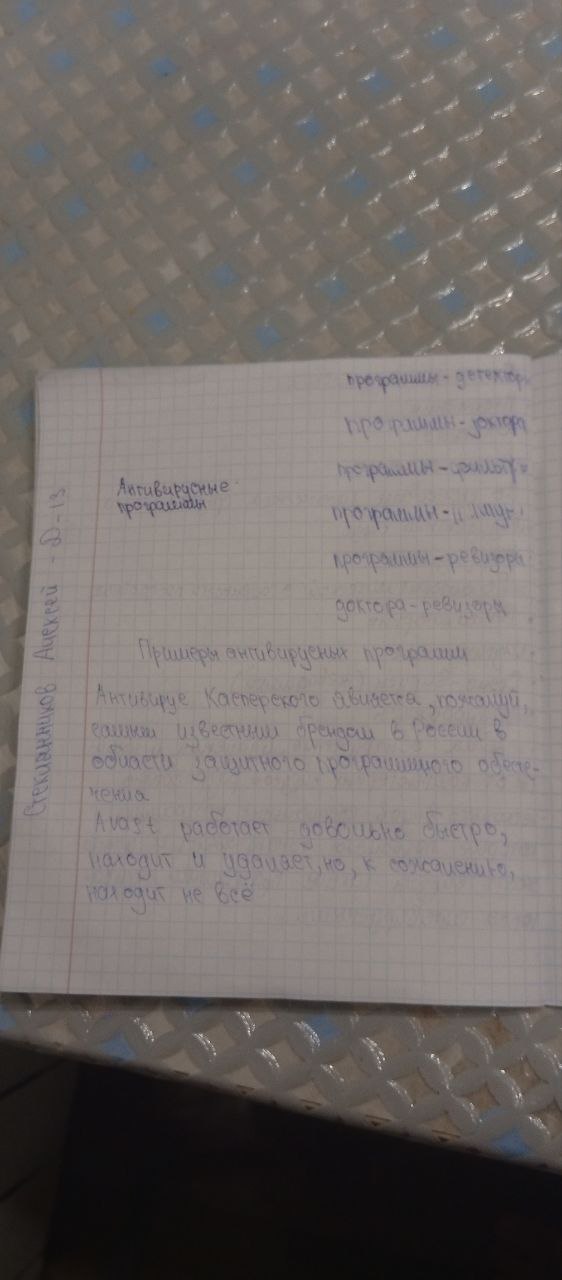 программы-детектор
программы-доктора
программы-фильтр
Антивирусные
программы
программы-
программы-ревизора
доктора-ревизоры
Примеры антивирусных программ
Антивирус Касперского является, пожалуй,
самым известным брендом в России в
области защитного программного обеспе-
чения
Avast работает довольно быстро,
находит и удаляет, но, к сожалению,
находит не всё
Стеклянников Алексей - Д-13